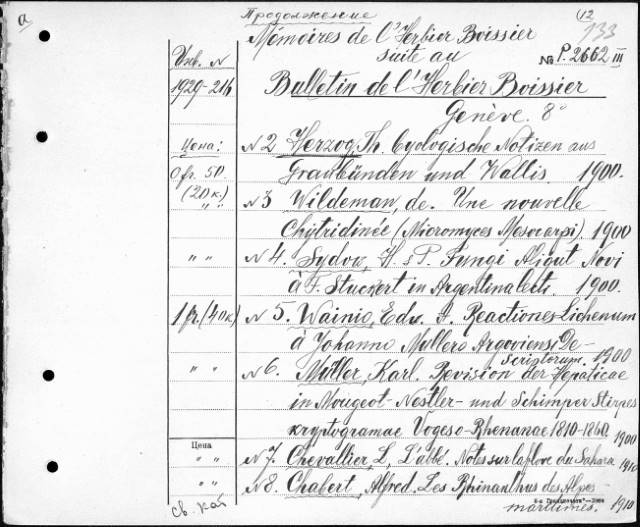 a
Продолжение
(12
133
Mémoires de l'Herbier Boissier
suite au
№ P. 2662 III
Инв. N
1929-216
Bulletin de l'Herbier Boissier
Genève. 8°
Цена:
N 2 Herzog, Th. Cyologische Notizen aus
0 fr. 50.
Graubünden und Wallis. 1900.
(20 к.)
" "
N 3 Wildeman, de. Une nouvelle
Chytridinée (Micromyces Mesocarpi). 1900
" "
N 4. Sydow, H. & P. Fungi Aliqut Novi
à F. Stuckert in Argentina lecti. 1900.
1 fr. (40 к)
N 5. Wainio, Edw. A. Reactiones Lichenum
à Johanno Mullero Argoviensi De-
scriptorum. 1900
" "
N 6. Müller, Karl. Revision der Hepaticae
in Mougeot-Nestler- und Schimper Stirpes
kryptogamae Vogeso-Rhenanae 1810-1860. 1900
Цена
" "
N 7. Chevallier, L, L'abbé. Notes sur la flore du Sahara 1910
" "
N 8. Chabert, Alfred. Les Rhinanthus des Alpes-
maritimes. 1910
св. каб